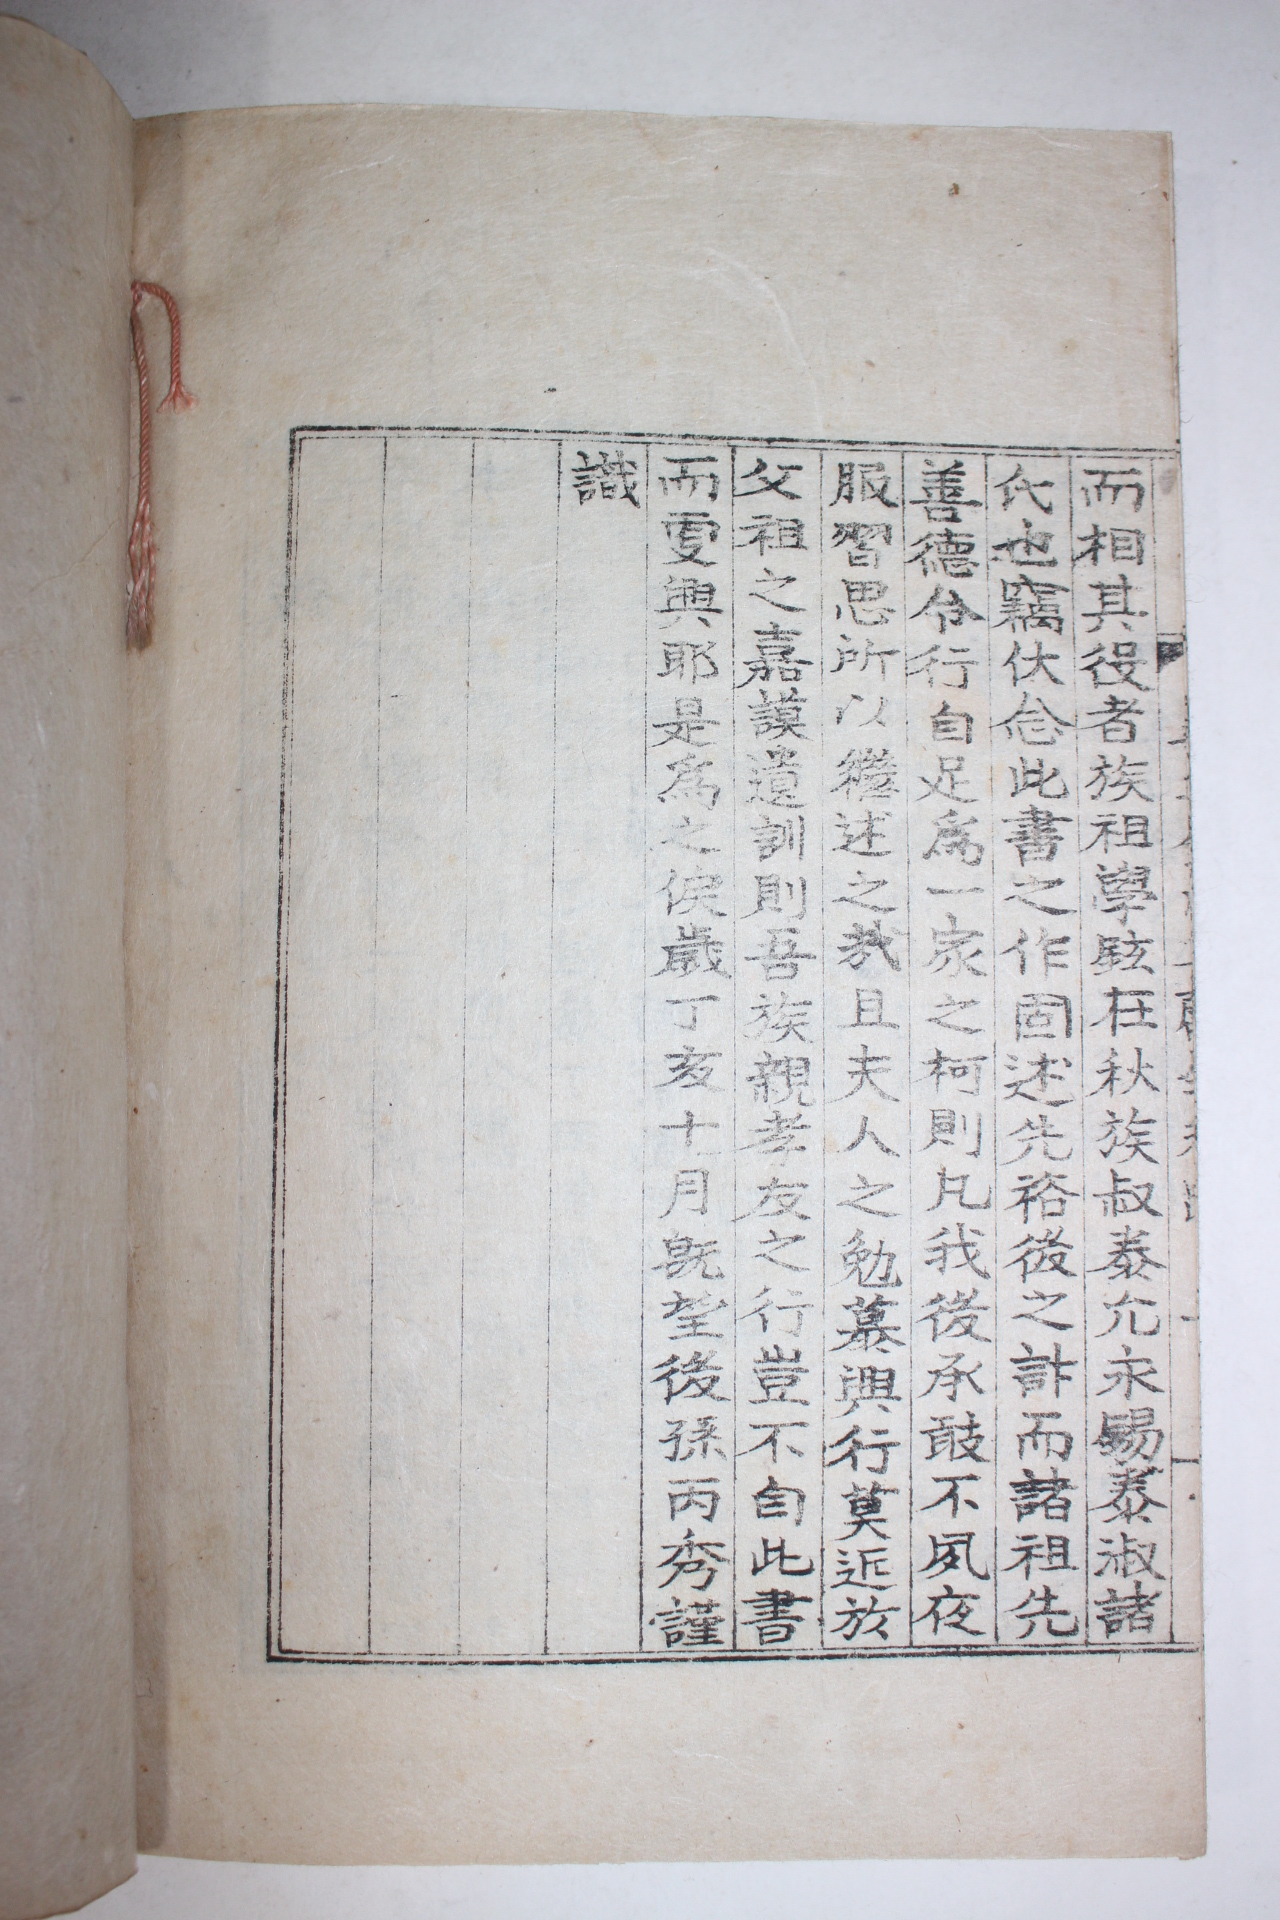 而相其役者族祖學鉉在秋族叔泰允永錫泰淑諸
氏也竊伏念此書之作固述先裕後之計而諸祖先
善德令行自足爲一家之柯則凡我後承敢不夙夜
服習思所以繼述之哉且夫人之勉慕興行莫近於
父祖之嘉謨遺訓則吾族親孝友之行豈不自此書
而興耶是爲之俟歲丁亥十月旣望後孫丙秀謹
識